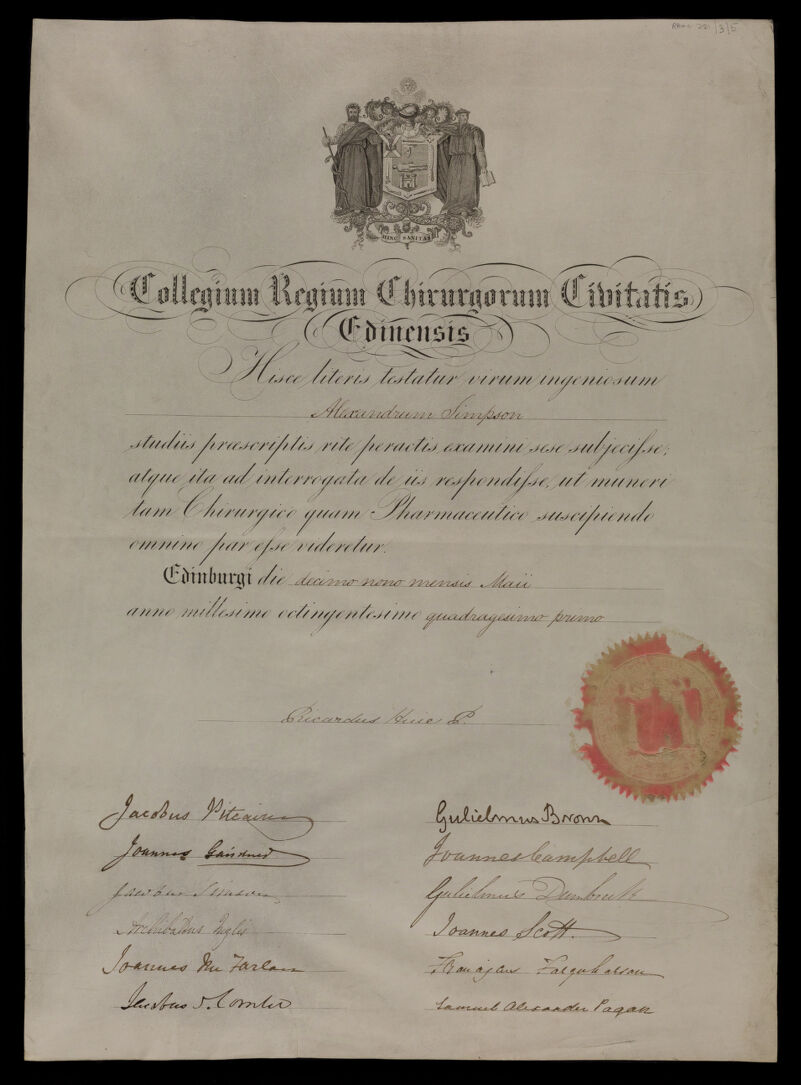 3/5
HINC SANITAS
Collegium Regium Chirurgorum Civitatis
Edinensis
Hisce literis testatur virum ingeniosum
Alexandrum Simpson
studiis præscriptis rite peractis examini sese subjecisse;
atque ita ad interrogata de iis respondisse, ut muneri
tam Chirurgico quam Pharmaceutico suscipiendo
omnino par esse videretur.
Edinburgi die decimo nono mensis Maii
anno millesimo octingentesimo quadragesimo primo
Ricardus Huie P.
Jacobus Pitcairn
Gulielmus Brown
Joannes Gairdner
Joannes Campbell
Jacobus Simson
Gulielmus Dumbreck
Archibaldus Inglis
Joannes Scott
Joannes McFarlan
Franciscus Farquharson
Jacobus S. Combe
Samuel Alexander Pagan